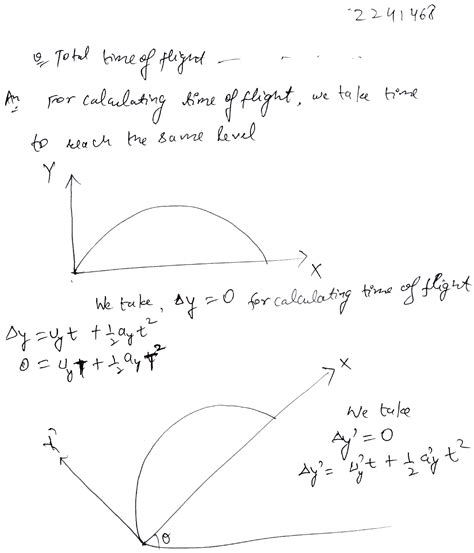 2241468
Q Total time of flight — . . . .
An For calculating time of flight, we take time
to reach the same level
Y
X
We take, Δy = 0 for calculating time of flight
Δy = u_y t + 1/2 a_y t²
0 = u_y T + 1/2 a_y T²
X
We take
Δy' = 0
Δy' = u_y' t + 1/2 a_y' t²
θ